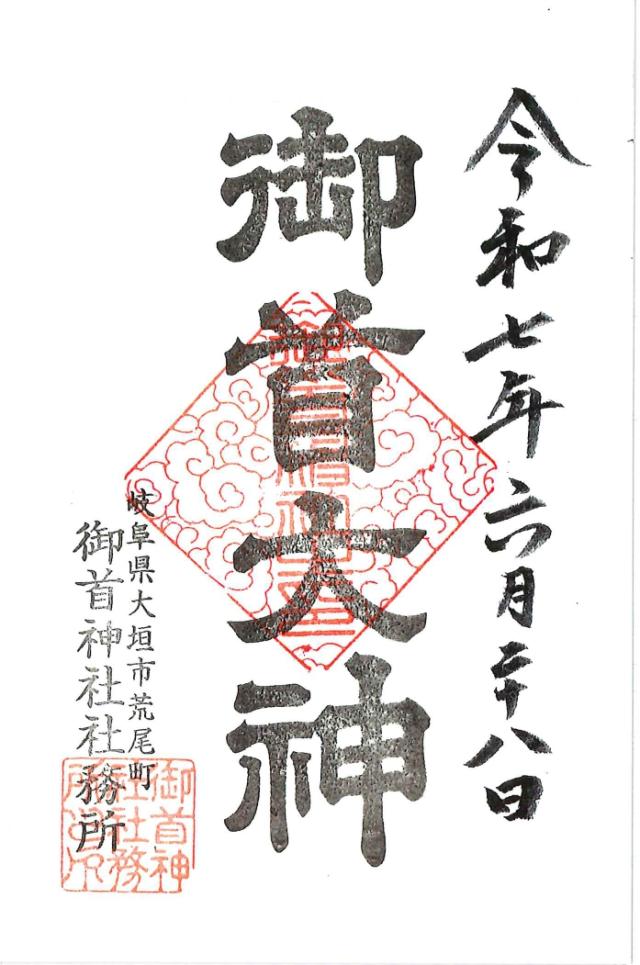 令和七年六月二十八日
御首大神
岐阜県大垣市荒尾町
御首神社社務所
御首神
社社務
所之印